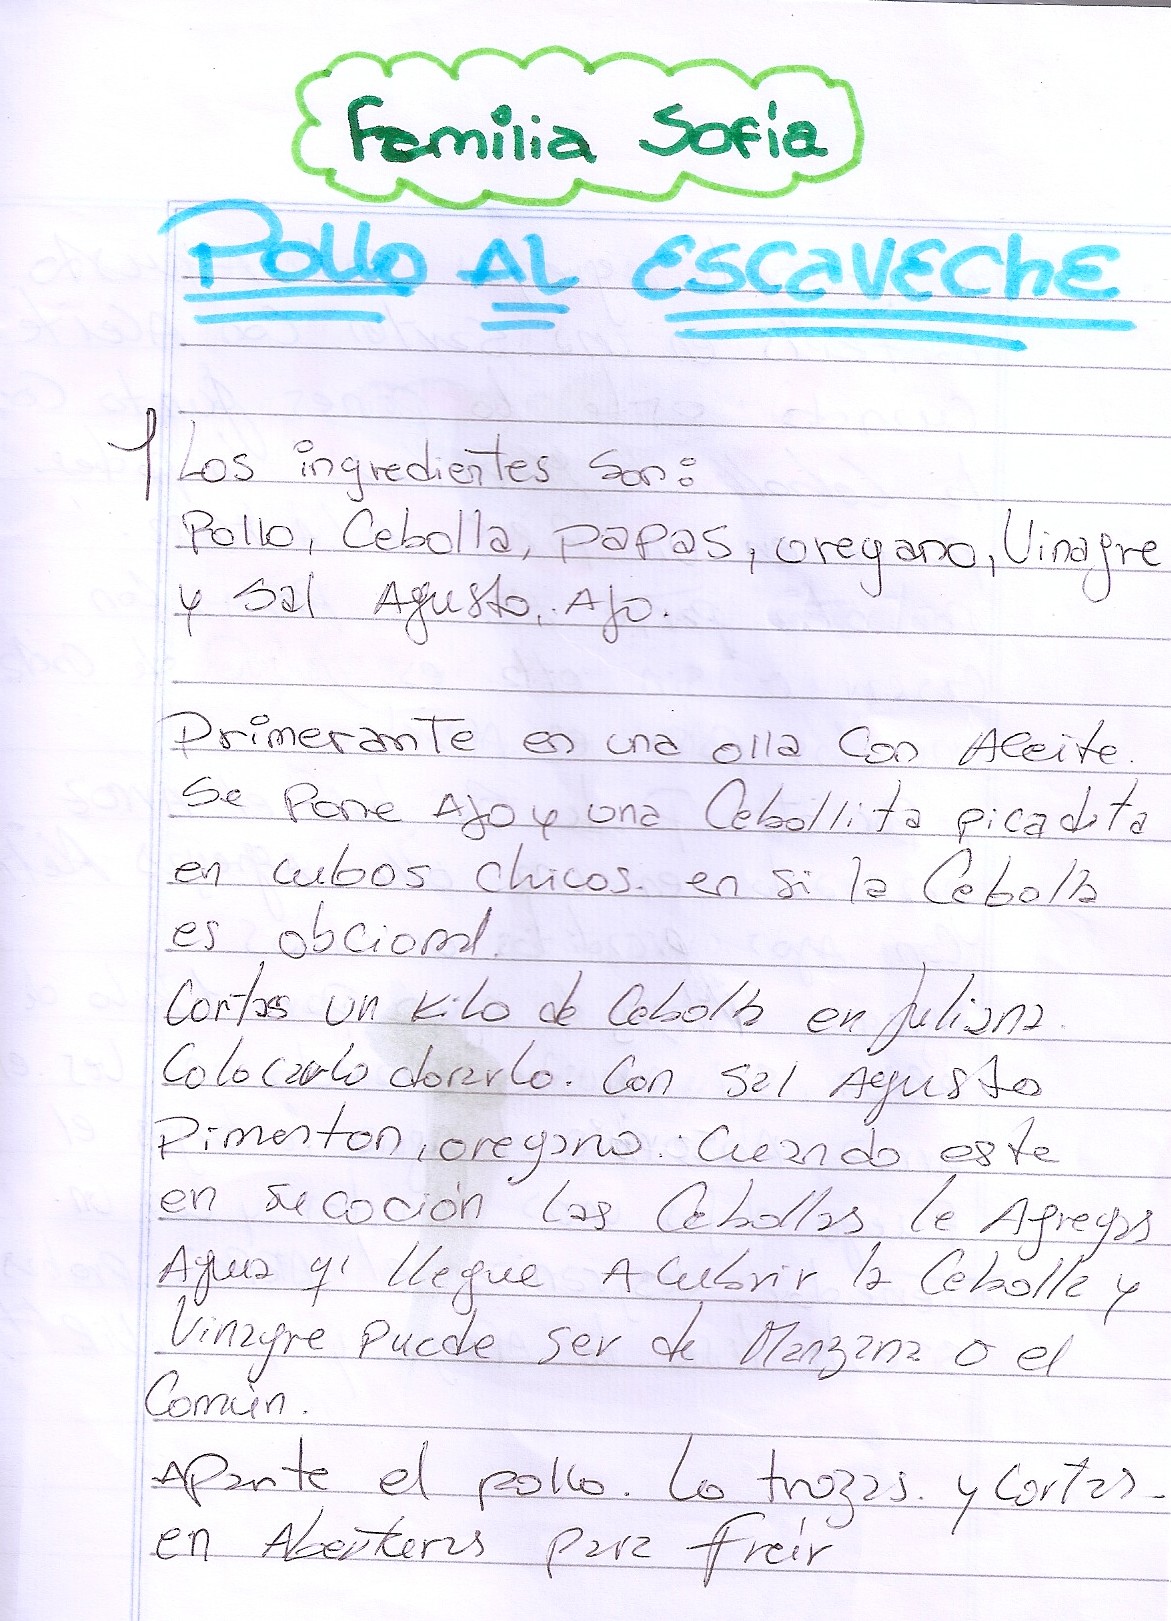 Familia Sofía
Pollo AL ESCAVECHE
1 Los ingredientes son:
Pollo, Cebolla, PAPAS, oregano, Vinagre
y Sal Agusto, Ajo.
Primerante en una olla Con Aceite.
se Pone Ajo y una Cebollita picadita
en cubos chicos. en si la Cebolla
es obcional.
Cortas un Kilo de Cebolla en juliana.
Colocarlo dorarlo. Con Sal Agusto
Pimenton, oregano. Cuando este
en su cocción las Cebollas le Agregas
Agua q' llegue A cubrir la Cebolla y
Vinagre puede ser de Manzana o el
Común.
Aparte el pollo. Lo trozas. y Cortas
en Aberturas para freir